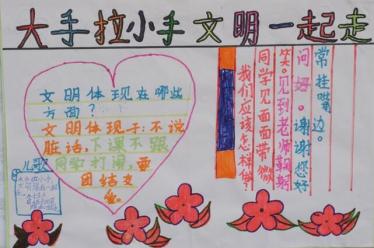 大手拉小手文明一起走
文明体现在哪些
方面？
文明体现于：不说
脏话，下课不跟
同学打闹，要
团结友
爱。
儿歌
常挂嘴边。
问好。谢谢您好
笑。见到老师鞠躬
同学见面面带微
我们应该怎样做？